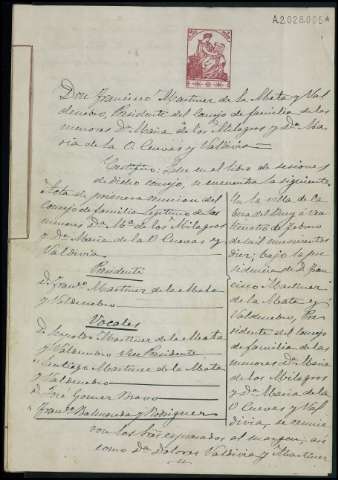 A2028005*
Don Francisco Martinez de la Mata y Val
denebro, Presidente del Consejo de familia, de las
menores Dª Maria de los Milagros y Dª Ma
ria de la O Cuevas y Valdivia
Certifico: Que en el libro de sesiones
de dicho consejo, se encuentra la siguiente
Acta de primera reunion del
Consejo de familia legitimo de las
menores Dª Mª de los Milagros
y Dª Maria de la O Cuevas y
Valdivia
Presidente
D. Franco Martinez de la Mata
y Valdenebro
Vocales
D. Martinez de la Mata
y Valdenebro Vice Presidente
Santiago Martinez de la Mata
y Valdenebro
D. José Gomez Bravo
Franco y Rodriguez
En la villa de Ca
bra del a vein
de
de mil novecientos
diez; bajo la pre
sidencia de D. Fran
cisco Martinez
de la Mata y
Valdenebro, Pre
sidente del Consejo
de familia de las
menores Dª Maria
de los Milagros
y Dª Maria de la
O Cuevas y Val
divia, se reunie
ron los Sres. expresados al margen; así
como Dª Dolores Valdivia y Martinez